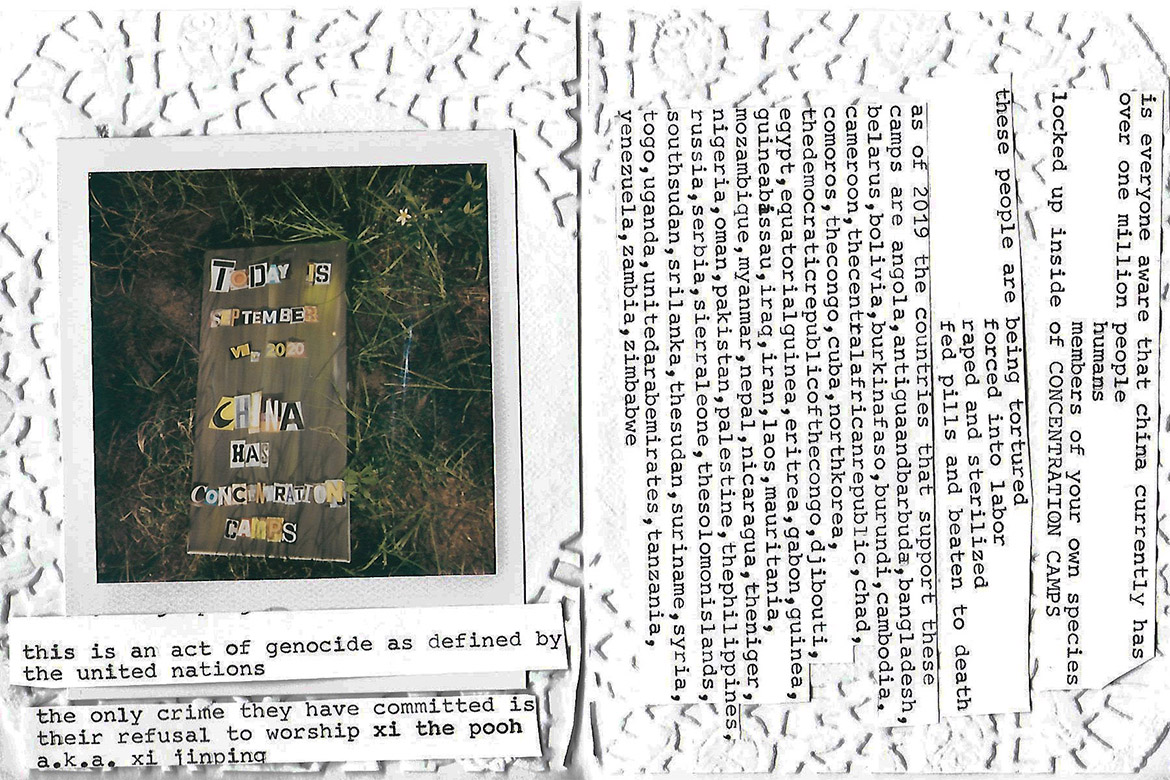 TODAY IS
SEPTEMBER
2020
CHINA
HAS
CONCENTRATION
CAMPS
this is an act of genocide as defined by
the united nations
the only crime they have committed is
their refusal to worship xi the pooh
a.k.a. xi jinping
is everyone aware that china currently has
over one million people
humans
members of your own species
locked up inside of CONCENTRATION CAMPS
these people are being tortured
forced into labor
raped and sterilized
fed pills and beaten to death
as of 2019 the countries that support these
camps are angola,antiguaandbarbuda,bangladesh,
belarus,bolivia,burkinafaso,burundi,cambodia,
cameroon,thecentralafricanrepublic,chad,
comoros,thecongo,cuba,northkorea,
thedemocraticrepublicofthecongo,djibouti,
egypt,equatorialguinea,eritrea,gabon,guinea,
guineabissau,iraq,iran,laos,mauritania,
mozambique,myanmar,nepal,nicaragua,theniger,
nigeria,oman,pakistan,palestine,thephilippines,
russia,serbia,sierraleone,thesolomonislands,
southsudan,srilanka,thesudan,suriname,syria,
togo,uganda,unitedarabemirates,tanzania,
venezuela,zambia,zimbabwe